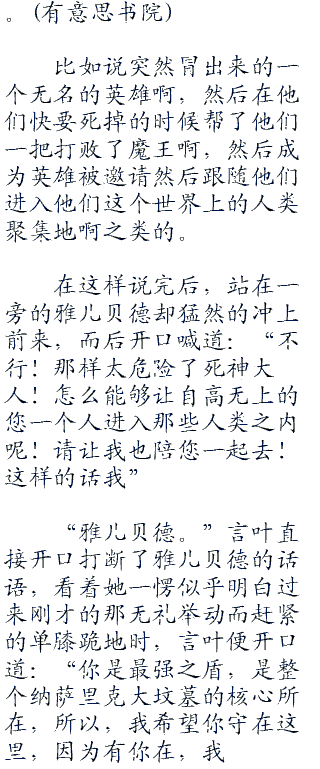 。(有意思书院)
比如说突然冒出来的一
个无名的英雄啊，然后在他
们快要死掉的时候帮了他们
一把打败了魔王啊，然后成
为英雄被邀请然后跟随他们
进入他们这个世界上的人类
聚集地啊之类的。
在这样说完后，站在一
旁的雅儿贝德却猛然的冲上
前来，而后开口喊道：“不
行！那样太危险了死神大
人！怎么能够让自高无上的
您一个人进入那些人类之内
呢！请让我也陪您一起去！
这样的话我”
“雅儿贝德。”言叶直
接开口打断了雅儿贝德的话
语，看着她一愣似乎明白过
来刚才的那无礼举动而赶紧
的单膝跪地时，言叶便开口
道：“你是最强之盾，是整
个纳萨里克大坟墓的核心所
在，所以，我希望你守在这
里，因为有你在，我